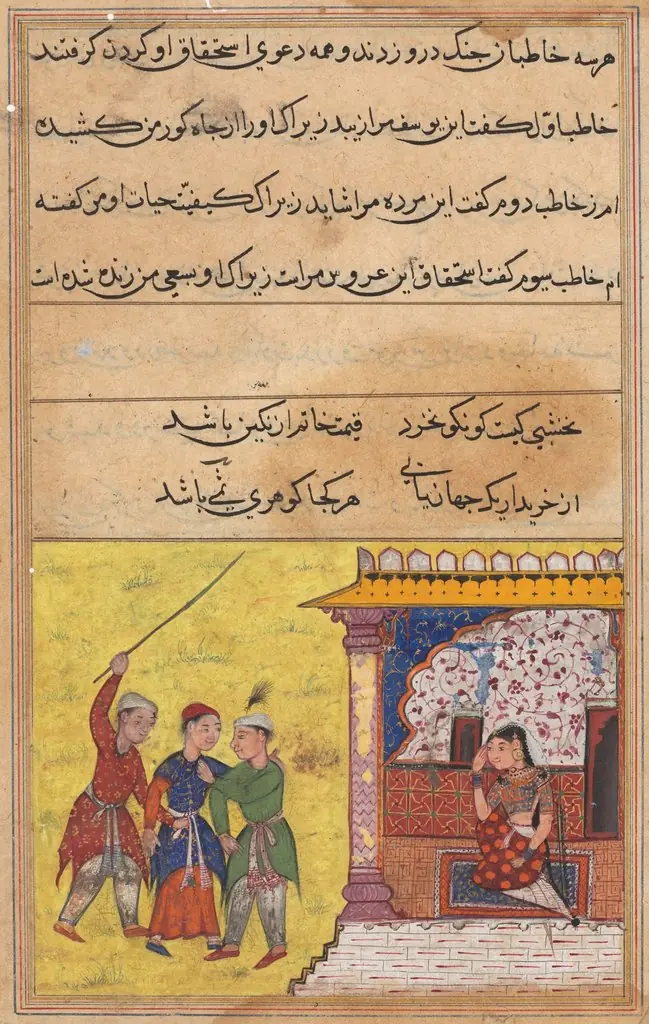 هر سه خاطبان جنک در و زدند و همه دعوی استحقاق او کردن کرفتند
خاطب اوّل کفت این یوسف مرا زیبد زیراک او را از جاه کور من کشیده
ام ز خاطب دوم کفت این مرده مرا شاید زیراک کیفیّت حیات او من کفته
ام خاطب سیوم کفت استحقاق این عروس مراست زیراک او بسعی من زنده شده است
نخشبی کیست کو نکو نخرد قیمت خاتم از نکین باشد
از خریدار یک جهان یابی هر کجا کوهری ثمین باشد